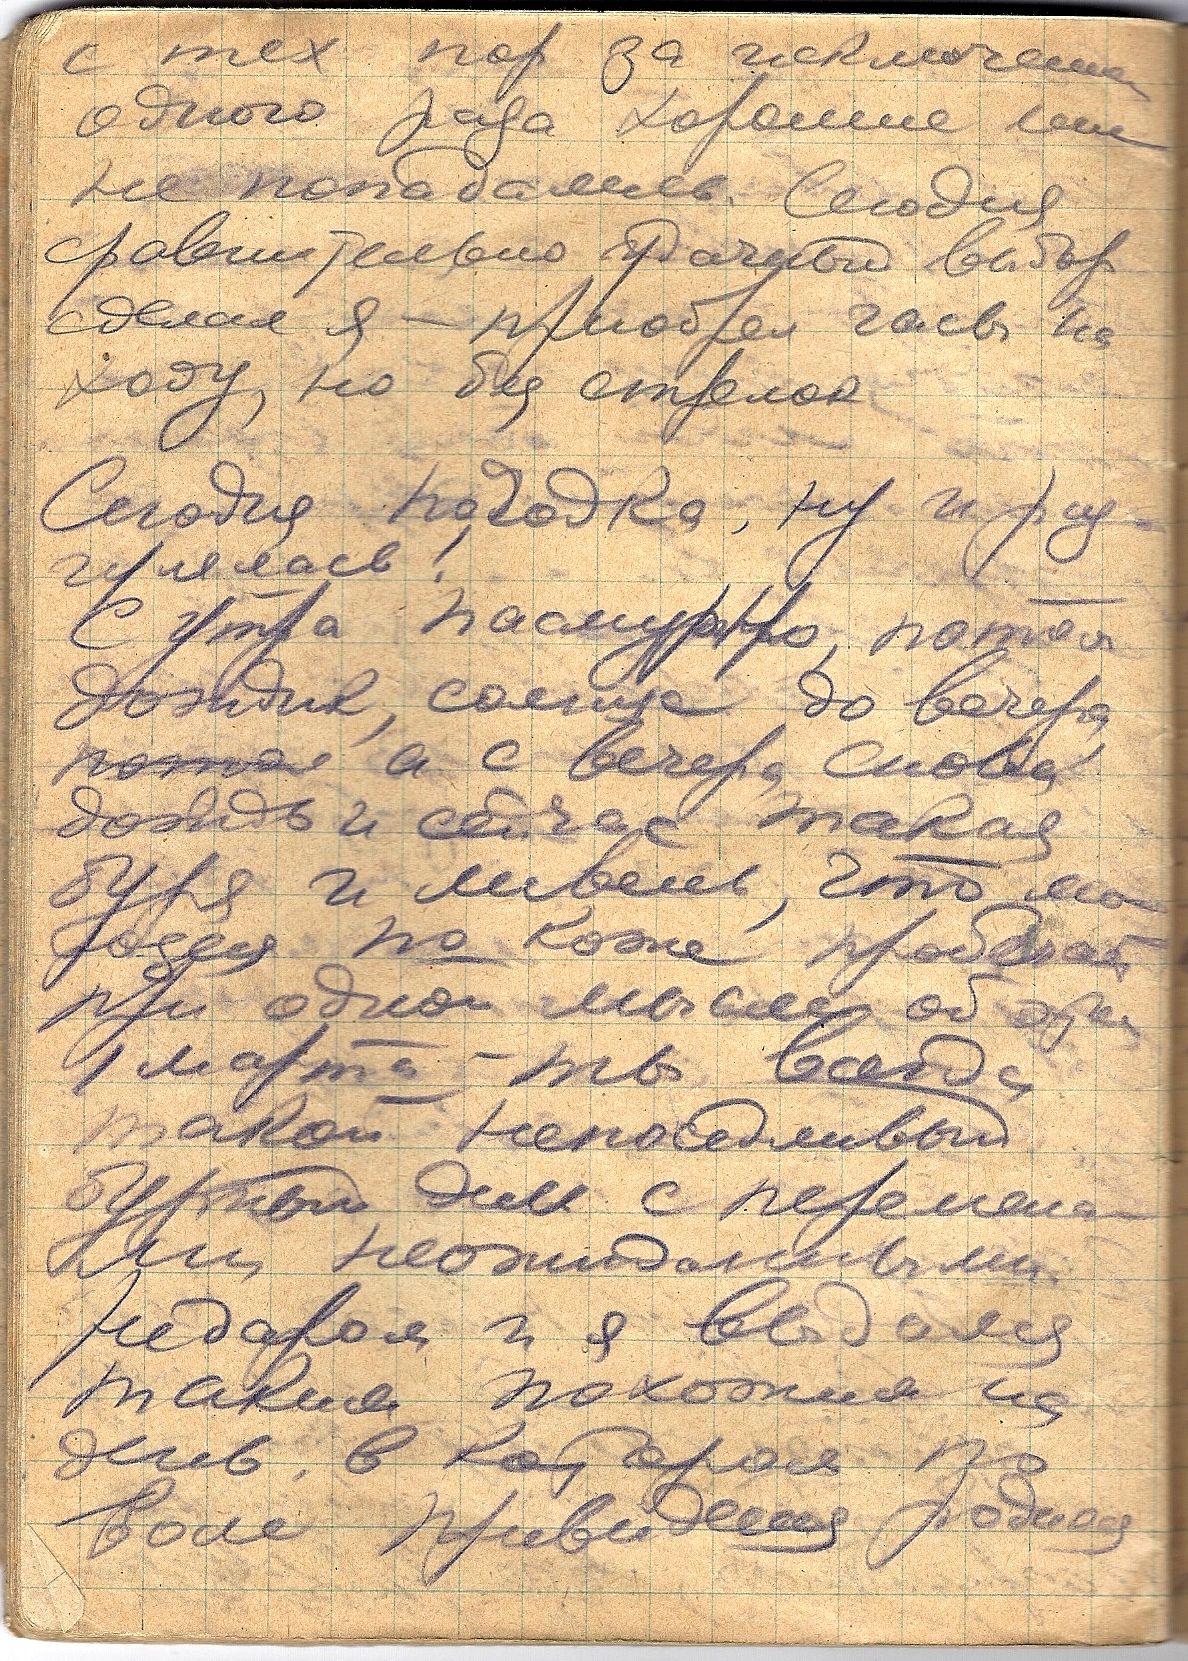 с тех пор за исключением
одного раза хорошие мне
не попадались. Сегодня
сравнительно удачный выбор
сделал я — приобрел часы на
ходу, но без стрелок
Сегодня погодка, ну и раз-
гулялась!
С утра пасмурно, потом
дождик, солнце до вечера
потом а с вечера снова
дождь и сейчас такая
буря и ливень, что мо-
роз по коже пробегает
при одной мысли об этом
1 марта – ты всегда
такой непоседливый
бурный день с перемена-
ми неожиданными
Недаром и я выдался
таким похожим на
день, в котором по
воле привидения родился